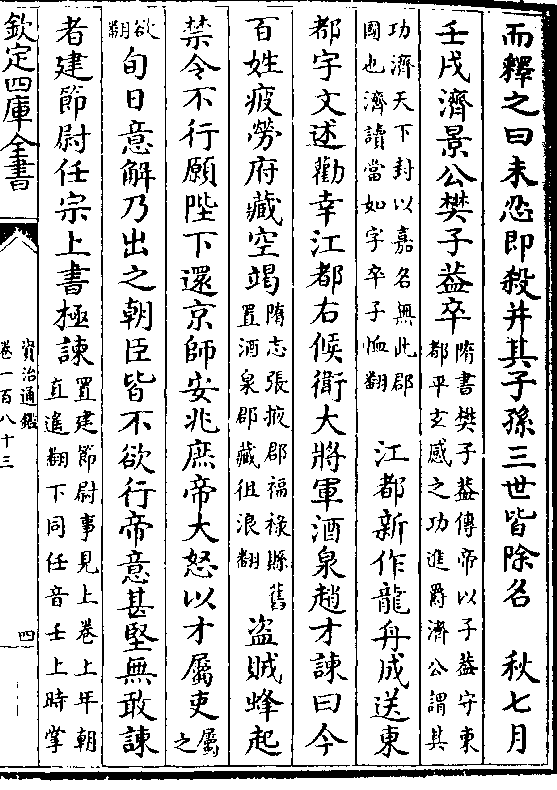 而釋之曰未忍即殺并其子孫三世皆除名 秋七月
壬戌濟景公樊子葢卒隋書樊子葢傳帝以子葢守東
都平玄感之功進爵濟公謂其
功濟天下封以嘉名無此郡
國也濟讀當如字卒子恤翻 江都新作龍舟成送東
都宇文述勸幸江都右候衛大將軍酒泉趙才諫曰今
百姓疲勞府藏空竭隋志張掖郡福祿縣舊
置酒泉郡藏徂浪翻 盜賊蜂起
禁令不行願陛下還京師安兆庶帝大怒以才屬吏屬
之
欲
翻旬日意解乃出之朝臣皆不欲行帝意甚堅無敢諫
者建節尉任宗上書極諫置建節尉事見上卷上年朝
直遙翻下同任音壬上時掌
欽定四庫全書
資治通鑑
卷一百八十三
四